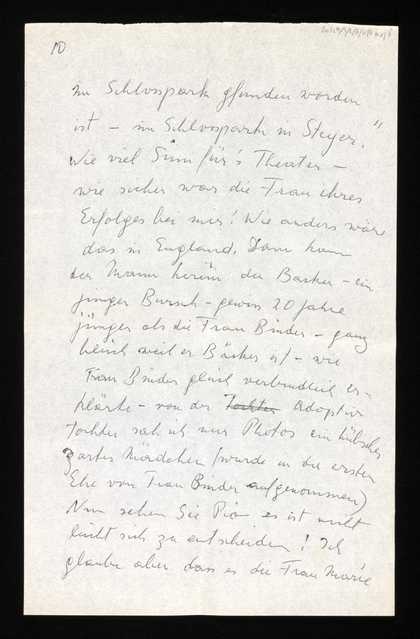 10
im Schlosspark gfunden worden
ist – im Schlosspark in Steyer."
Wie viel Sinn für's Theater –
wie sicher war die Frau ihres
Erfolges bei mir! Wie anders wäre
das in England. Dann kam
der Mann herein der Bäcker – ein
junger Bursch – gewiss 20 Jahre
jünger als die Frau Binder – ganz
bleich weil er Bäcker ist – wie
Frau Binder gleich verbindlich er-
klärte – von der Tochter Adoptiv
tochter sah ich nur Photos ein hübsches
zartes Mädchen (wurde in der ersten
Ehe von Frau Binder aufgenommen)
Nun sehen Sie Pia es ist nicht
leicht sich zu entscheiden! Ich
glaube aber dass es die Frau Marie